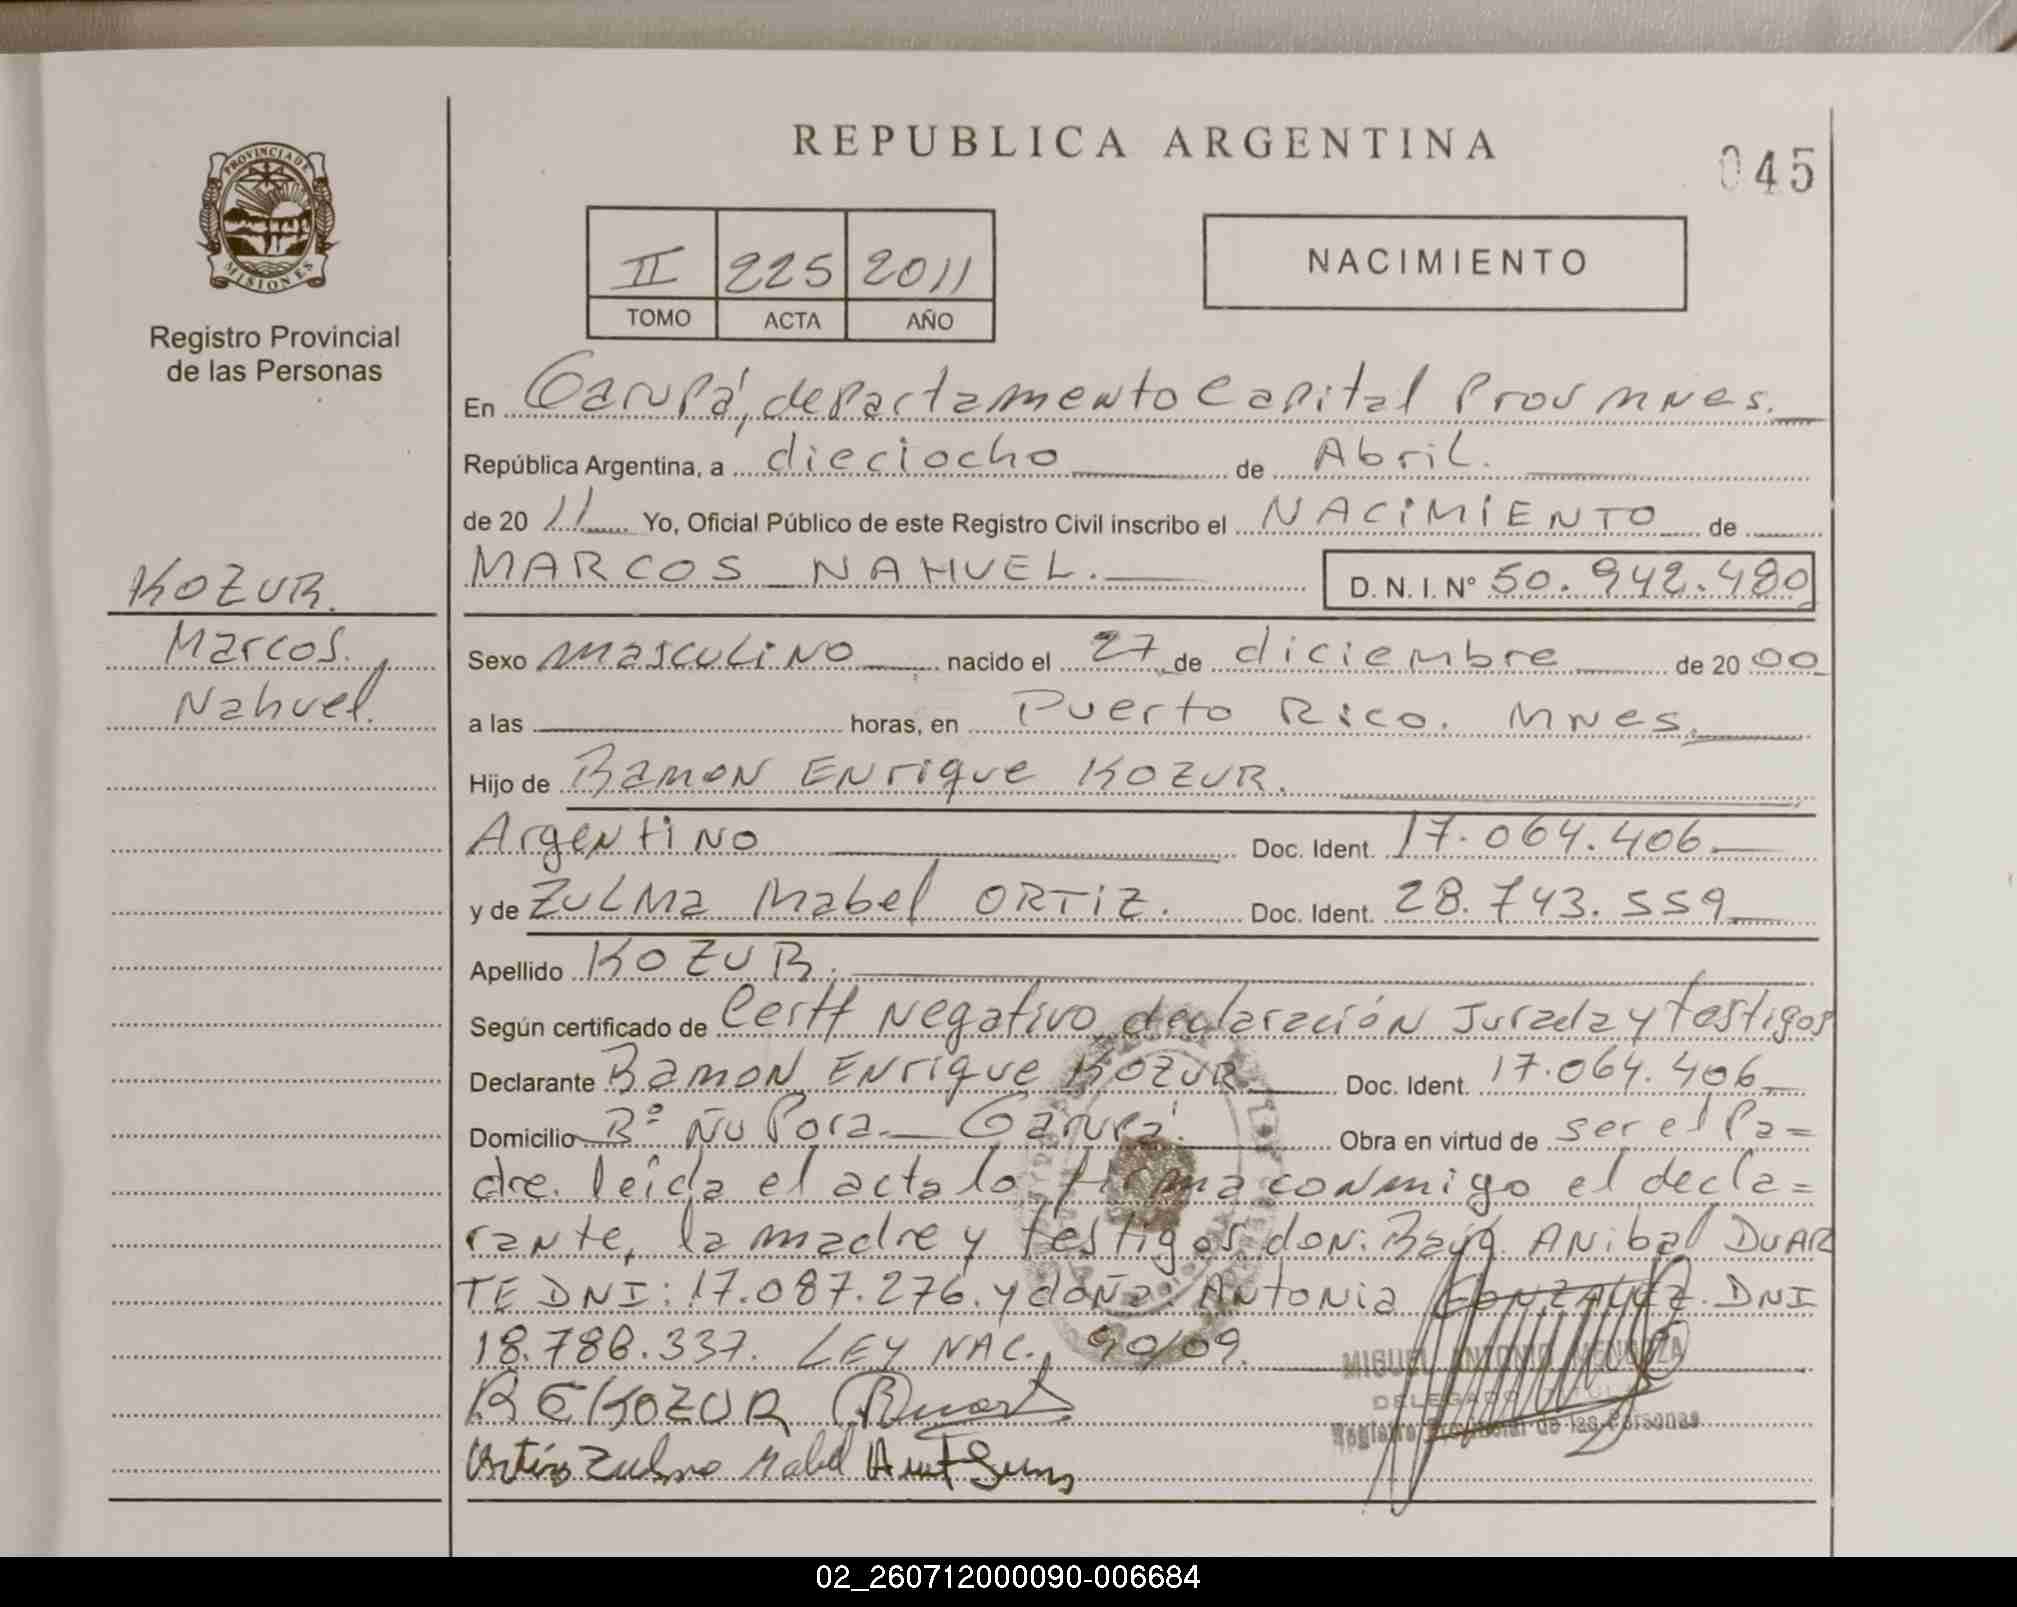 REPUBLICA ARGENTINA
045
PROVINCIA DE
MISIONES
Registro Provincial
de las Personas
II 225 2011
TOMO ACTA AÑO
NACIMIENTO
En Garupá, departamento Capital Prov Mnes.
República Argentina, a dieciocho de Abril.
de 20 11 Yo, Oficial Público de este Registro Civil inscribo el NACIMIENTO de
MARCOS NAHUEL. D. N. I. N° 50.942.480
KOZUR.
Marcos.
Nahuel.
Sexo masculino nacido el 27 de diciembre de 20 00
a las horas, en Puerto Rico. Mnes.
Hijo de Ramon Enrique KOZUR.
Argentino Doc. Ident. 17.064.406
y de ZULMA Mabel ORTIZ. Doc. Ident. 28.743.559
Apellido KOZUR.
Según certificado de Certf Negativo declaración Jurada y testigos
Declarante Ramon Enrique KOZUR Doc. Ident. 17.064.406
Domicilio B° Ñu Pora. Garupá. Obra en virtud de ser el Pa=
dre. leida el acta lo firma conmigo el decla=
rante, la madre y testigos don: Aníbal DUAR
TE DNI: 17.087.276. y doña. Antonia GONZALEZ. DNI
18.788.337. LEY NAC. 90/09.
MIGUEL ANTONIO MENDOZA
DELEGADO TITULAR
Registro Provincial de las Personas
R E KOZUR
Ortiz Zulma Mabel
02_260712000090-006684